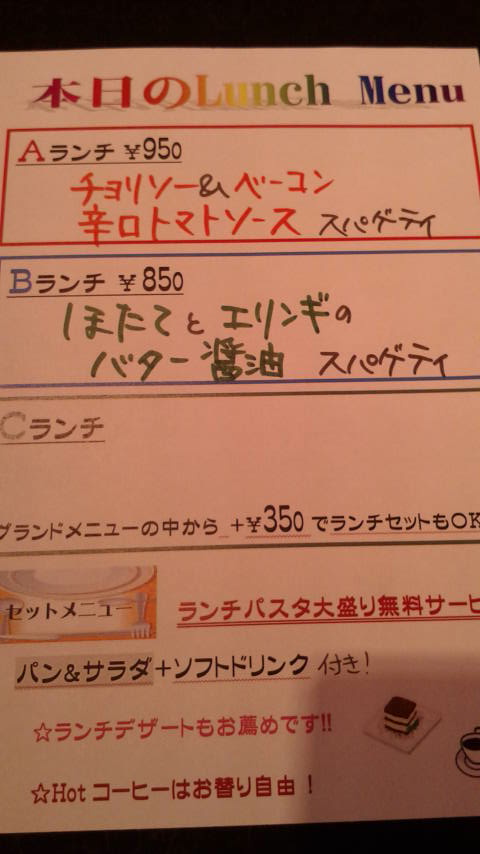 本日のLunch Menu
Aランチ ¥950
チョリソー&ベーコン
辛口トマトソース スパゲティ
Bランチ ¥850
ほたてとエリンギの
バター醤油 スパゲティ
Cランチ
グランドメニューの中から +¥350 でランチセットもOK
セットメニュー
ランチパスタ大盛り無料サービ
パン&サラダ+ソフトドリンク 付き!
☆ランチデザートもお薦めです!!
☆Hot コーヒーはお替り自由!